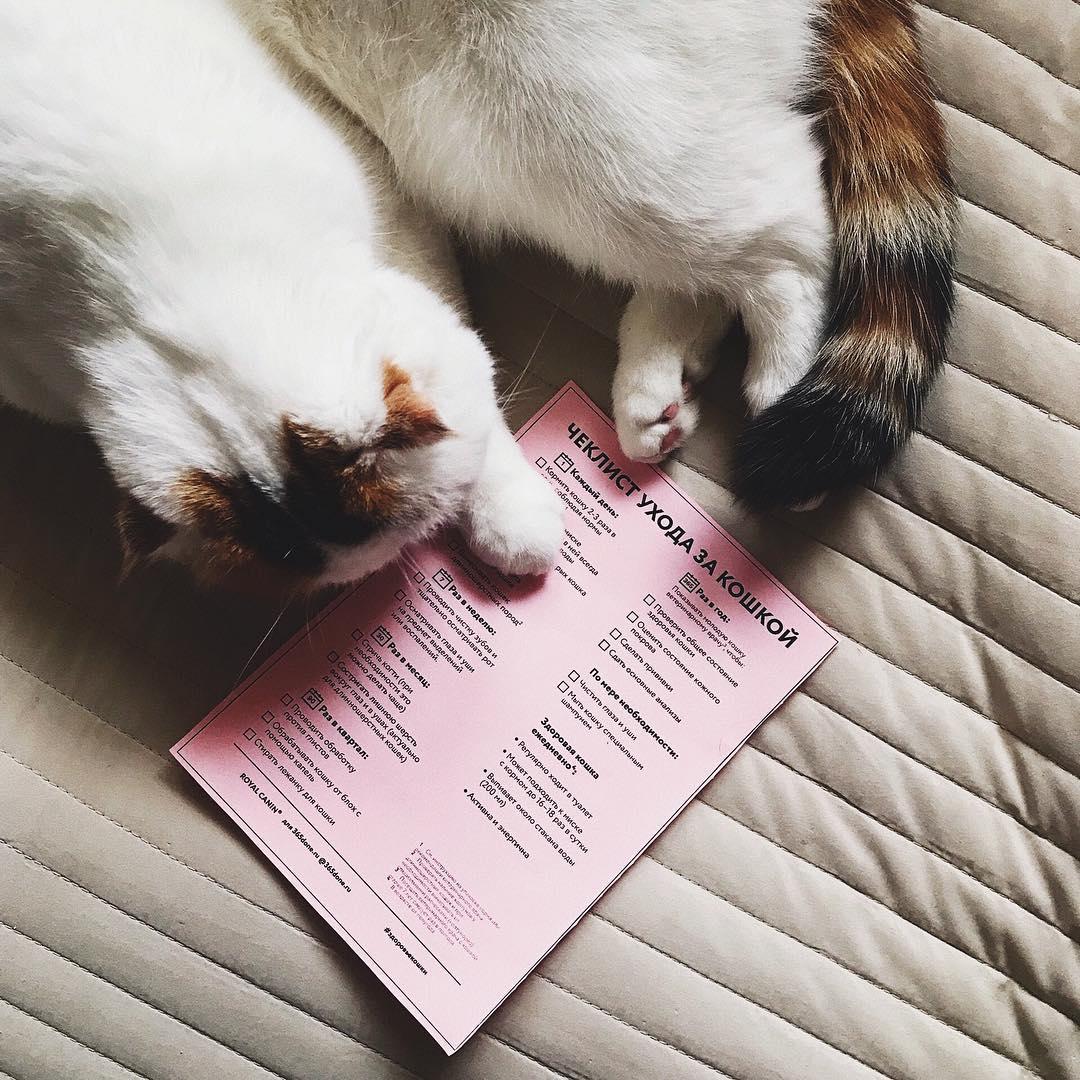 ЧЕКЛИСТ УХОДА ЗА КОШКОЙ
1
Каждый день:
Кормить кошку 2-3 раза в
соблюдая нормы
миске
в ней всегда
воды
кошка
кошек
пород²
7
Раз в неделю:
Проводить чистку зубов и
тщательно осматривать рот
Осматривать глаза и уши
на предмет выделений
или воспалений.
30
Раз в месяц:
Стричь когти (при
необходимости это
можно делать чаще)
Состригать лишнюю шерсть
вокруг глаз и в ушах (актуально
для длинношерстных кошек)
90
Раз в квартал:
Проводить обработку
против глистов
Обрабатывать кошку от блох с
помощью капель
Стирать лежанку для кошки
365
Раз в год:
Показывать молодую кошку
ветеринарному врачу³, чтобы:
Проверить общее состояние
здоровья кошки
Оценить состояние кожного
покрова
Сделать прививки
Сдать основные анализы
По мере необходимости:
Чистить глаза и уши
Мыть кошку специальным
шампунем
Здоровая кошка
ежедневно⁴:
• Регулярно ходит в туалет
• Может подходить к миске
с кормом до 16–18 раз в сутки
• Выпивает около стакана воды
(200 мл)
• Активна и энергична
ROYAL CANIN®
для 365done.ru @365done.ru
#здоровьекошки